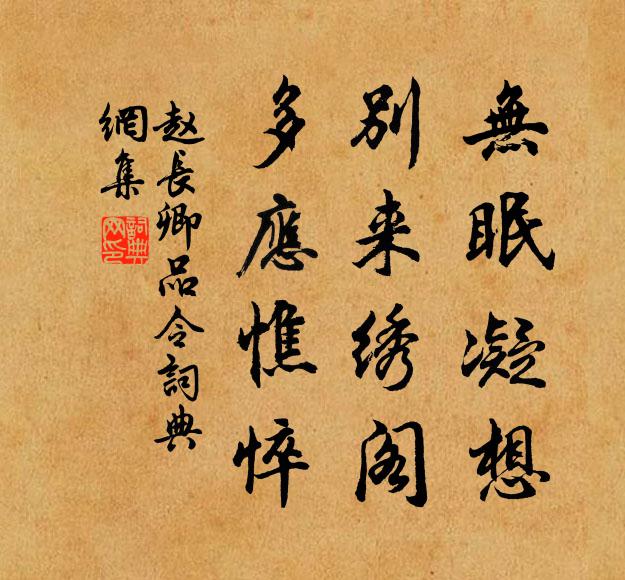 無眠凝想
别来绣阁
多應憔悴
赵長卿品令詞典
網集
詞典
网印